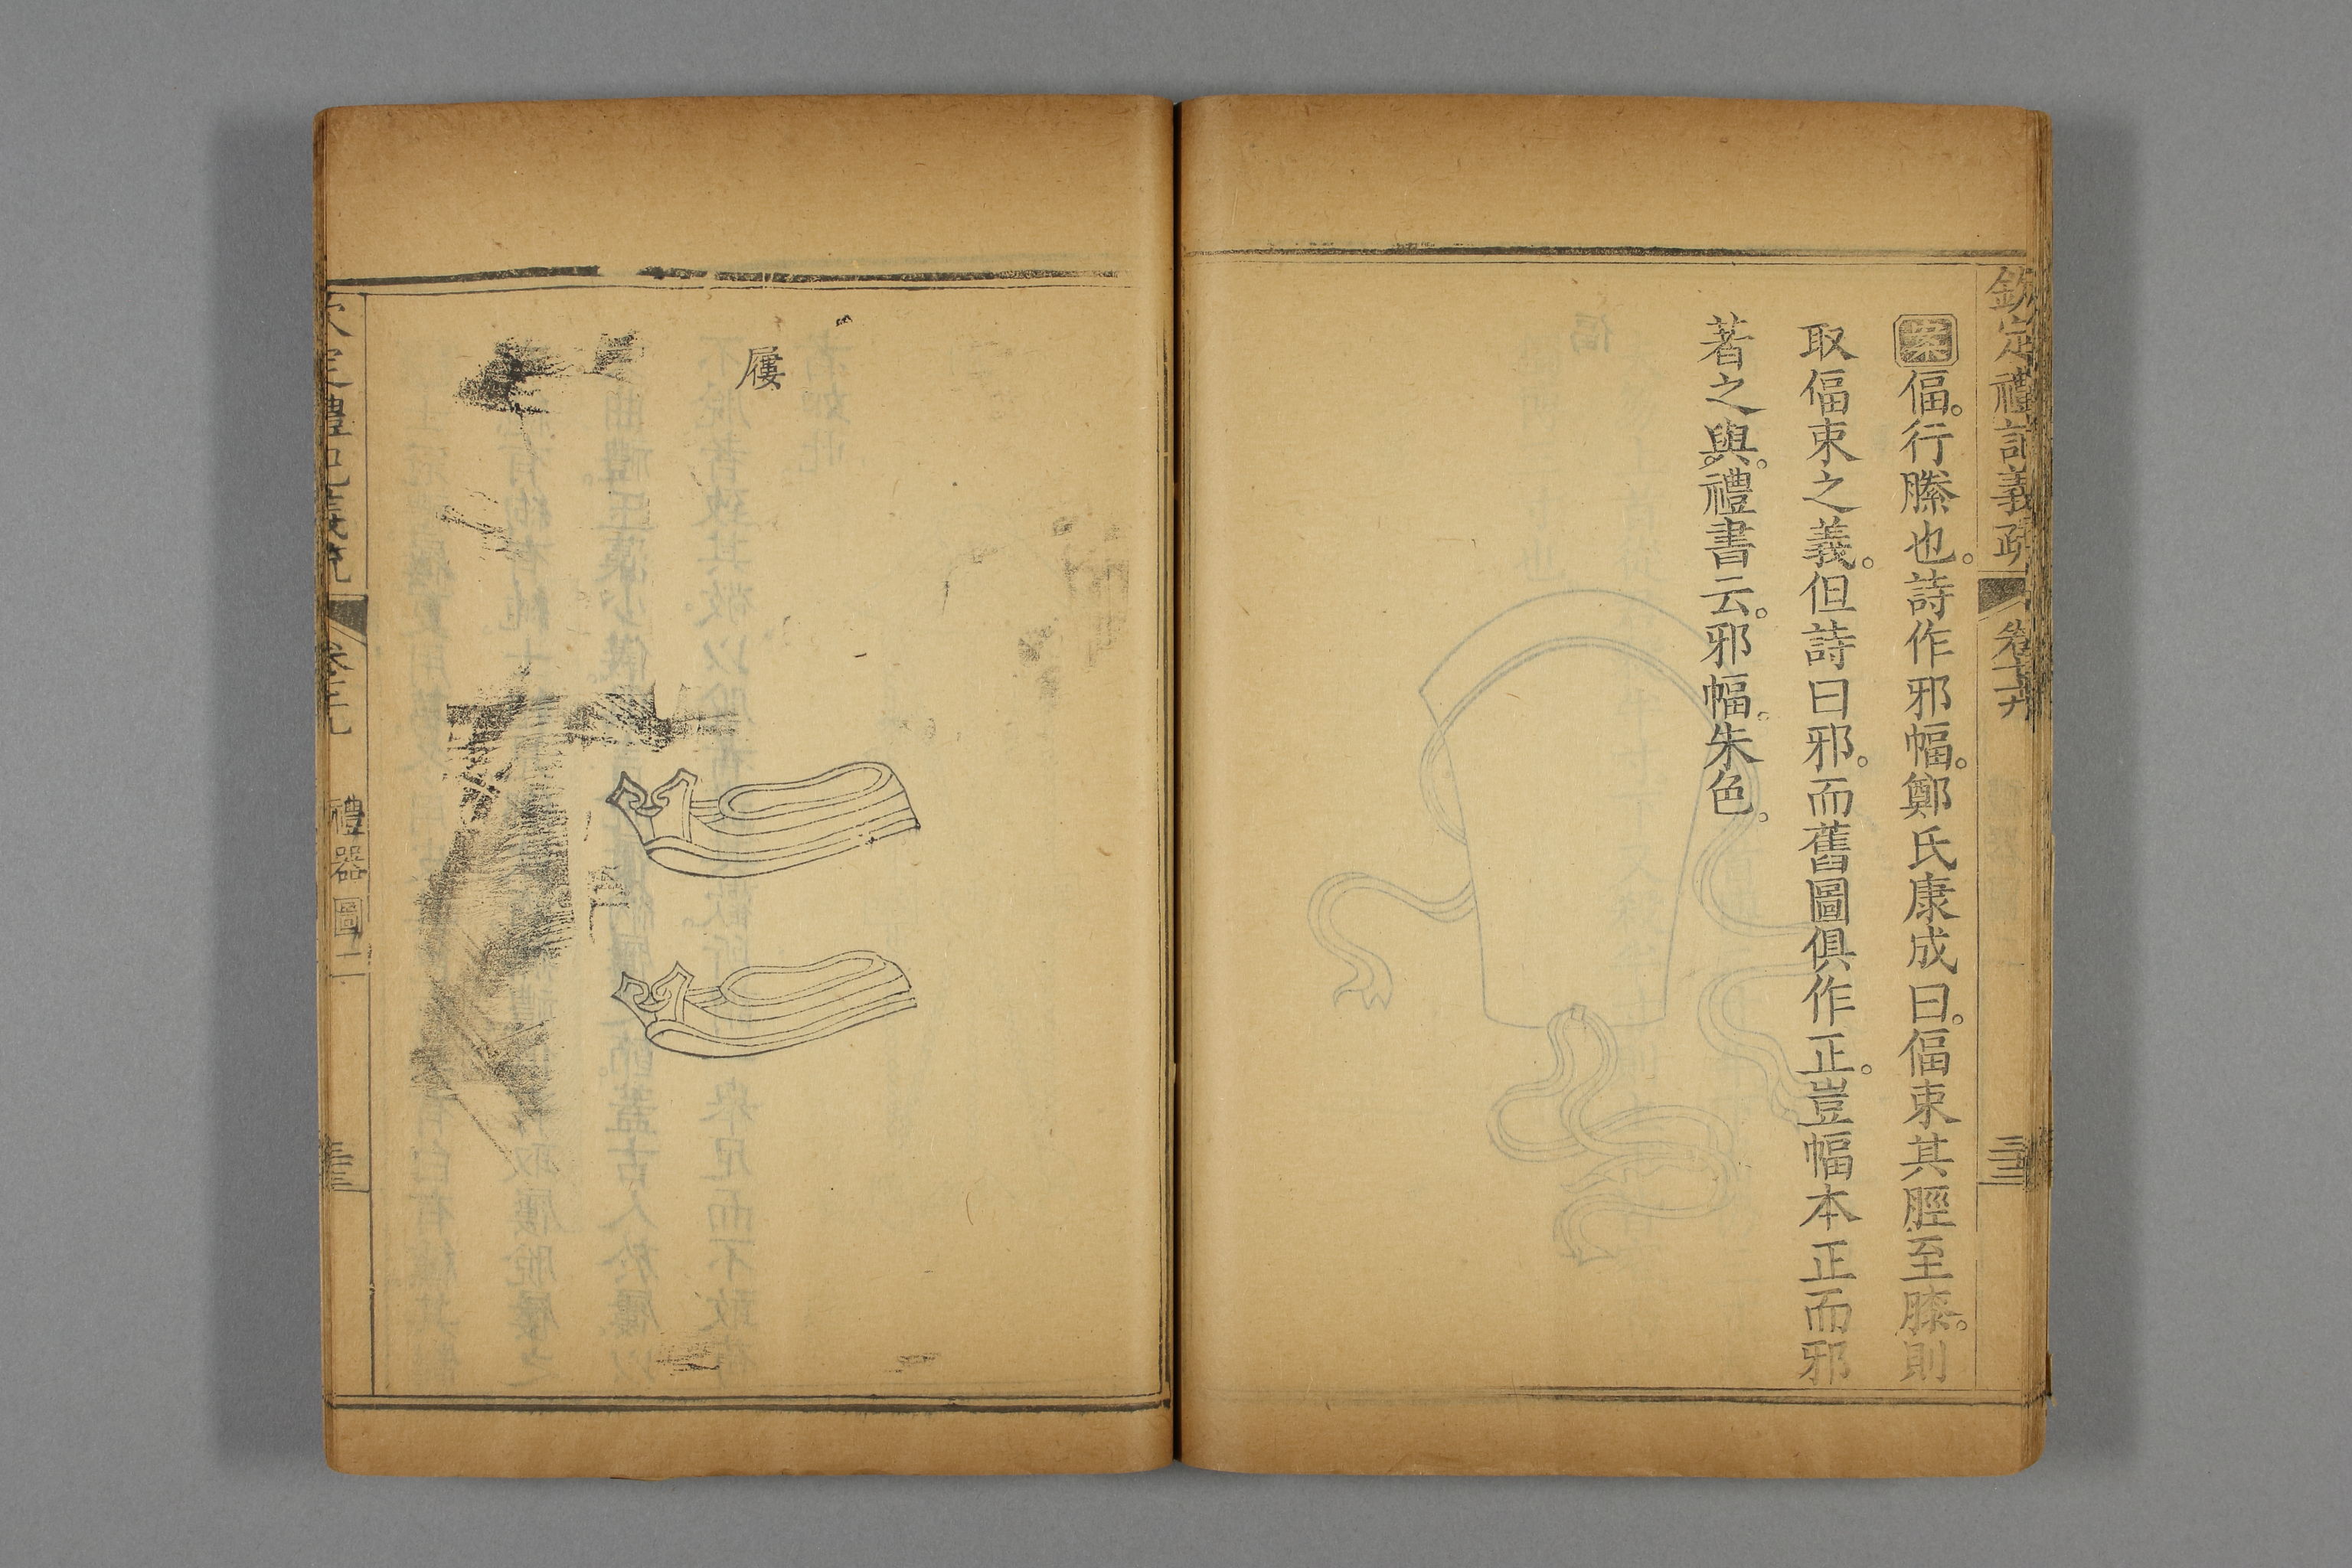 欽定禮記義疏 卷七十九
案偪。行縢也。詩作邪幅。鄭氏康成曰。偪束其脛至膝。則
取偪束之義。但詩曰邪。而舊圖俱作正。豈幅本正而邪
著之與。禮書云。邪幅。朱色。
屨
禮器圖二